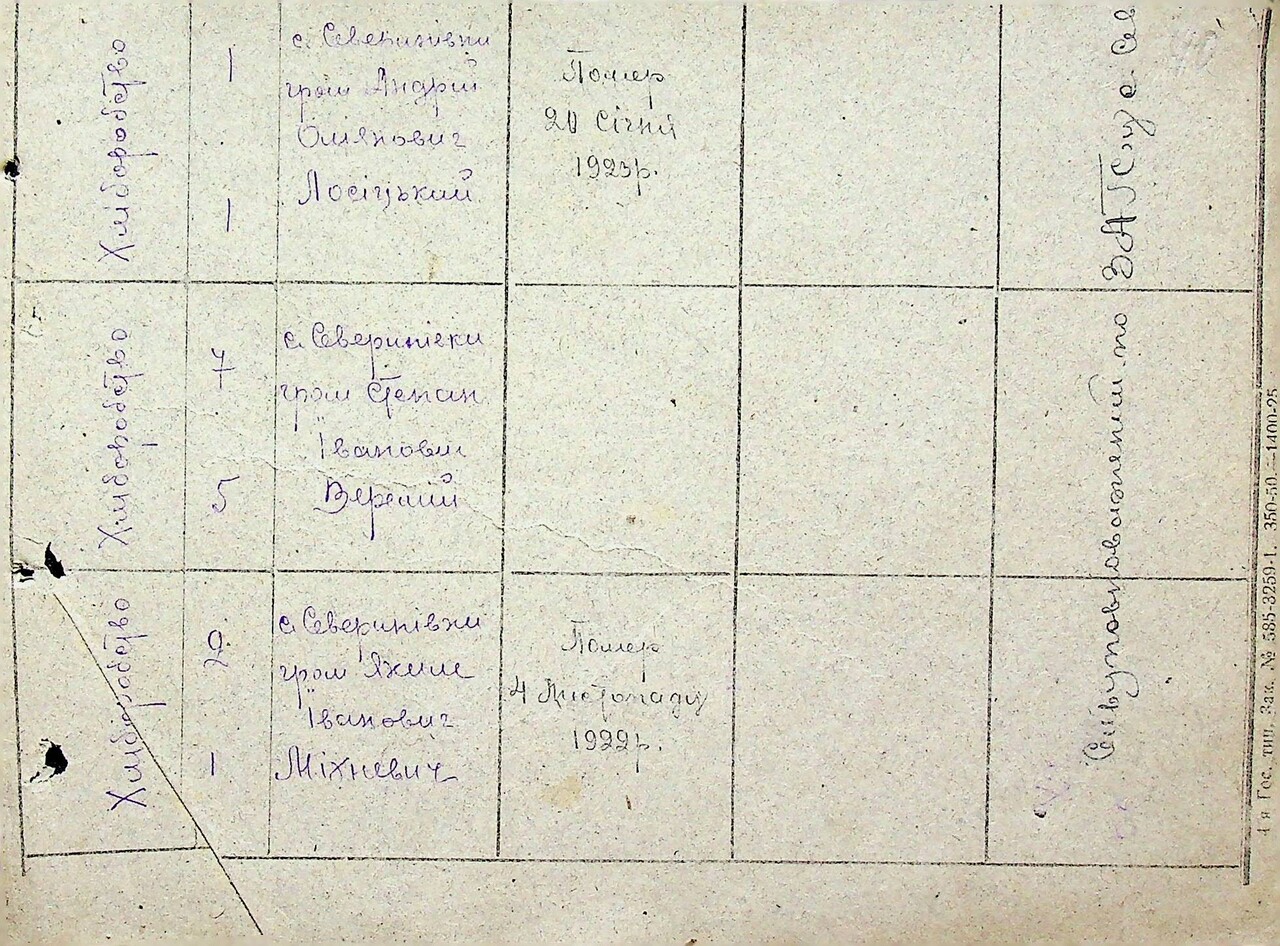 Хліборобство
1
1
с. Северинівки
гром Андрій
Омянович
Лосіцький
Помер
20 Січня
1923р.
Хліборобство
7
5
с. Северинівки
гром Степан
Іванович
Веремій
Хліборобство
2
1
с. Северинівки
гром Яким
Іванович
Міхневич
Помер
4 Листопаду
1922р.
уповноважений по ЗАГСу с. Сев
4-я Гос. тип. Зак. № 585-3259-1. 350-50.—1400-25